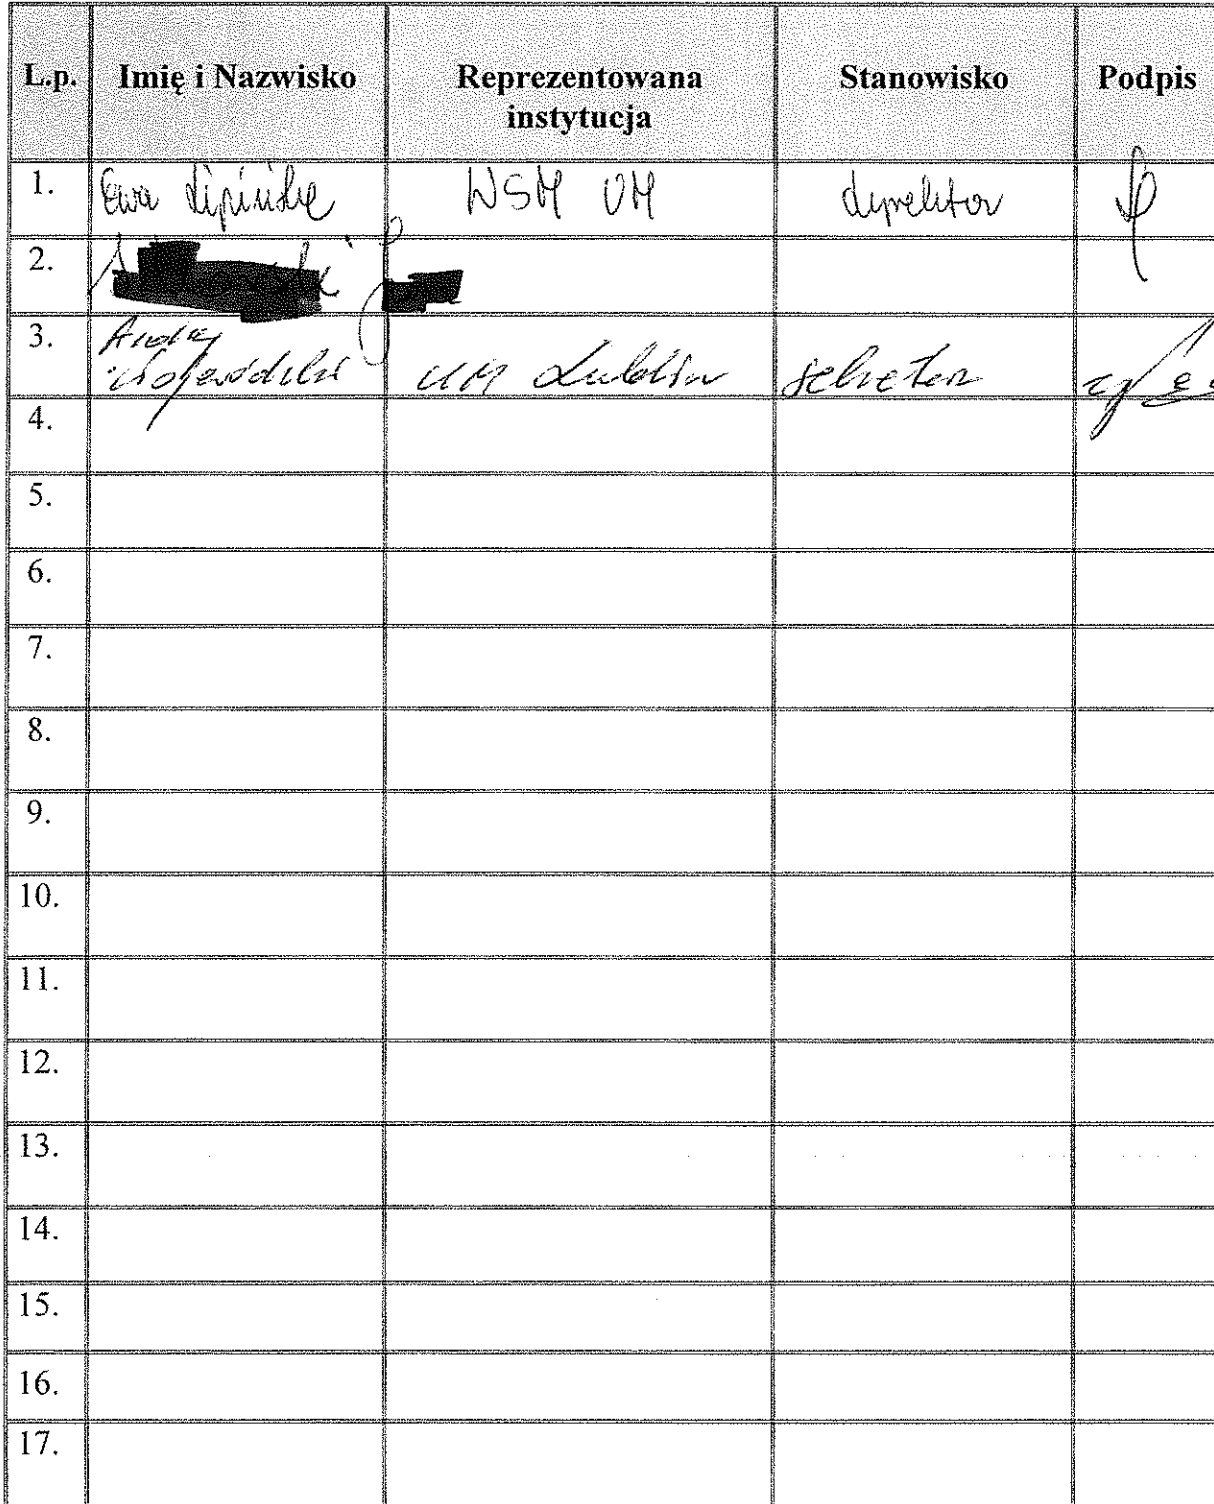 L.p. Imię i Nazwisko Reprezentowana instytucja Stanowisko Podpis
1. Ewa Lipińska WSM UM dyrektor
2.
3. Andrzej Wojewódzki UM Lublin sekretarz
4.
5.
6.
7.
8.
9.
10.
11.
12.
13.
14.
15.
16.
17.